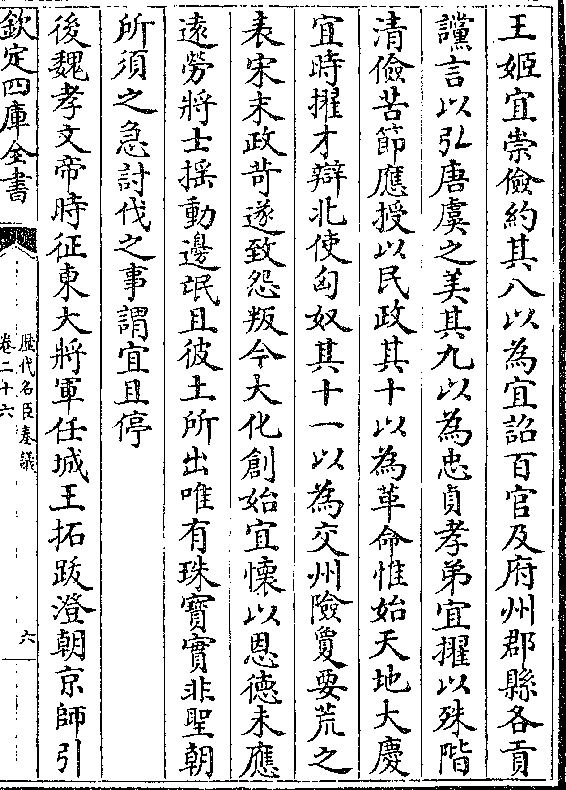 王姬宜崇儉約其八以為宜詔百官及府州郡縣各貢
讜言以弘唐虞之美其九以為忠貞孝弟宜擢以殊階
清儉苦節應授以民政其十以為革命惟始天地大慶
宜時擢才辯北使匈奴其十一以為交州險敻要荒之
表宋末政苛遂致怨叛今大化創始宜懷以恩德未應
遠勞將士摇動邊氓且彼土所出唯有珠寶實非聖朝
所須之急討伐之事謂宜且停
後魏孝文帝時征東大將軍任城王拓跋澄朝京師引
欽定四庫全書
歷代名臣奏議
卷二十六
六